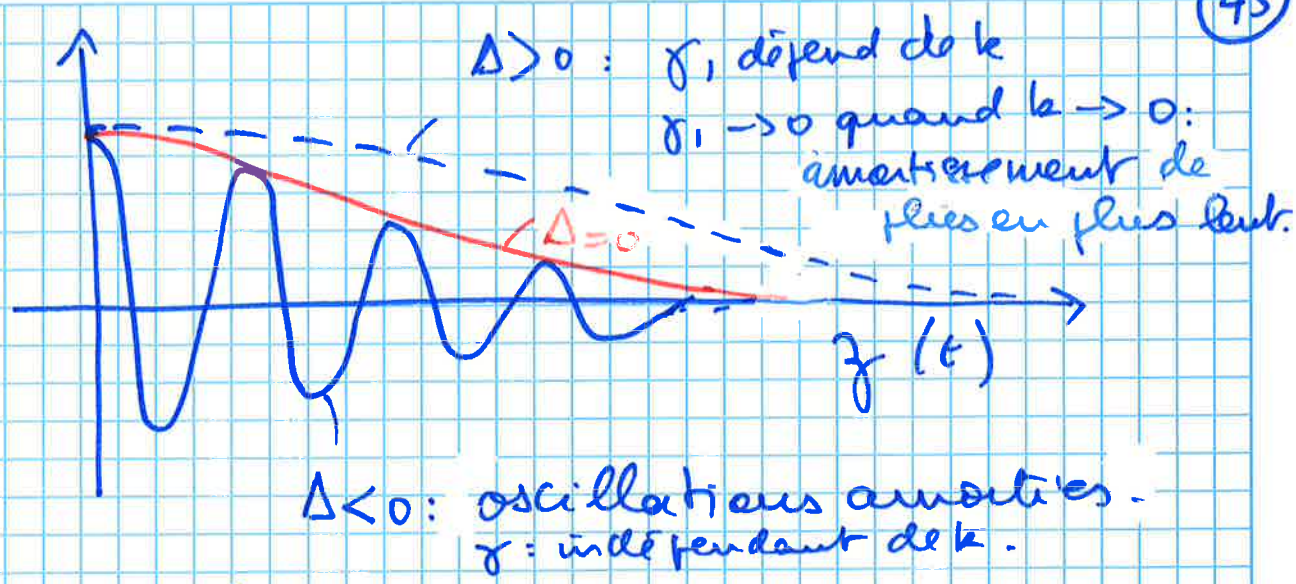 45
Δ>0 : γ₁ dépend de k
γ₁ → 0 quand k → 0 :
amortissement de
plus en plus lent.
Δ=0
z (t)
Δ<0 : oscillations amorties.
γ : indépendant de k.